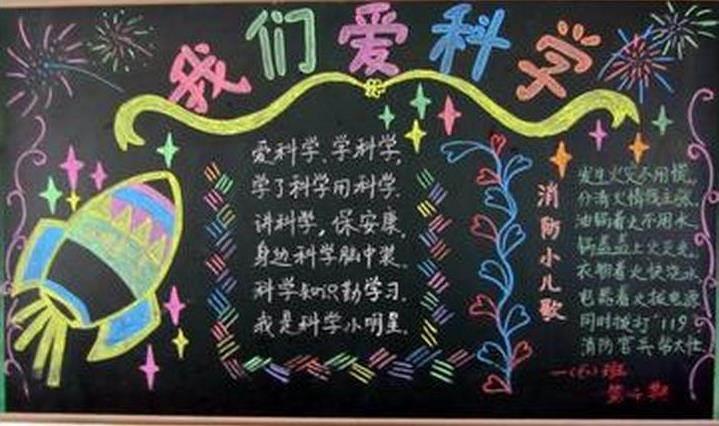 我们爱科学
爱科学、学科学,
学了科学用科学.
讲科学,保安康,
身边科学脑中装.
科学知识勤学习.
我是科学小明星.
消防小儿歌
发生火灾不用慌,
分清火情
油锅着火不用水,
锅盖盖上火灭光.
衣物着火快浇水
电器着火拔电源
同时拨打"119"
消防官兵帮大忙.
班